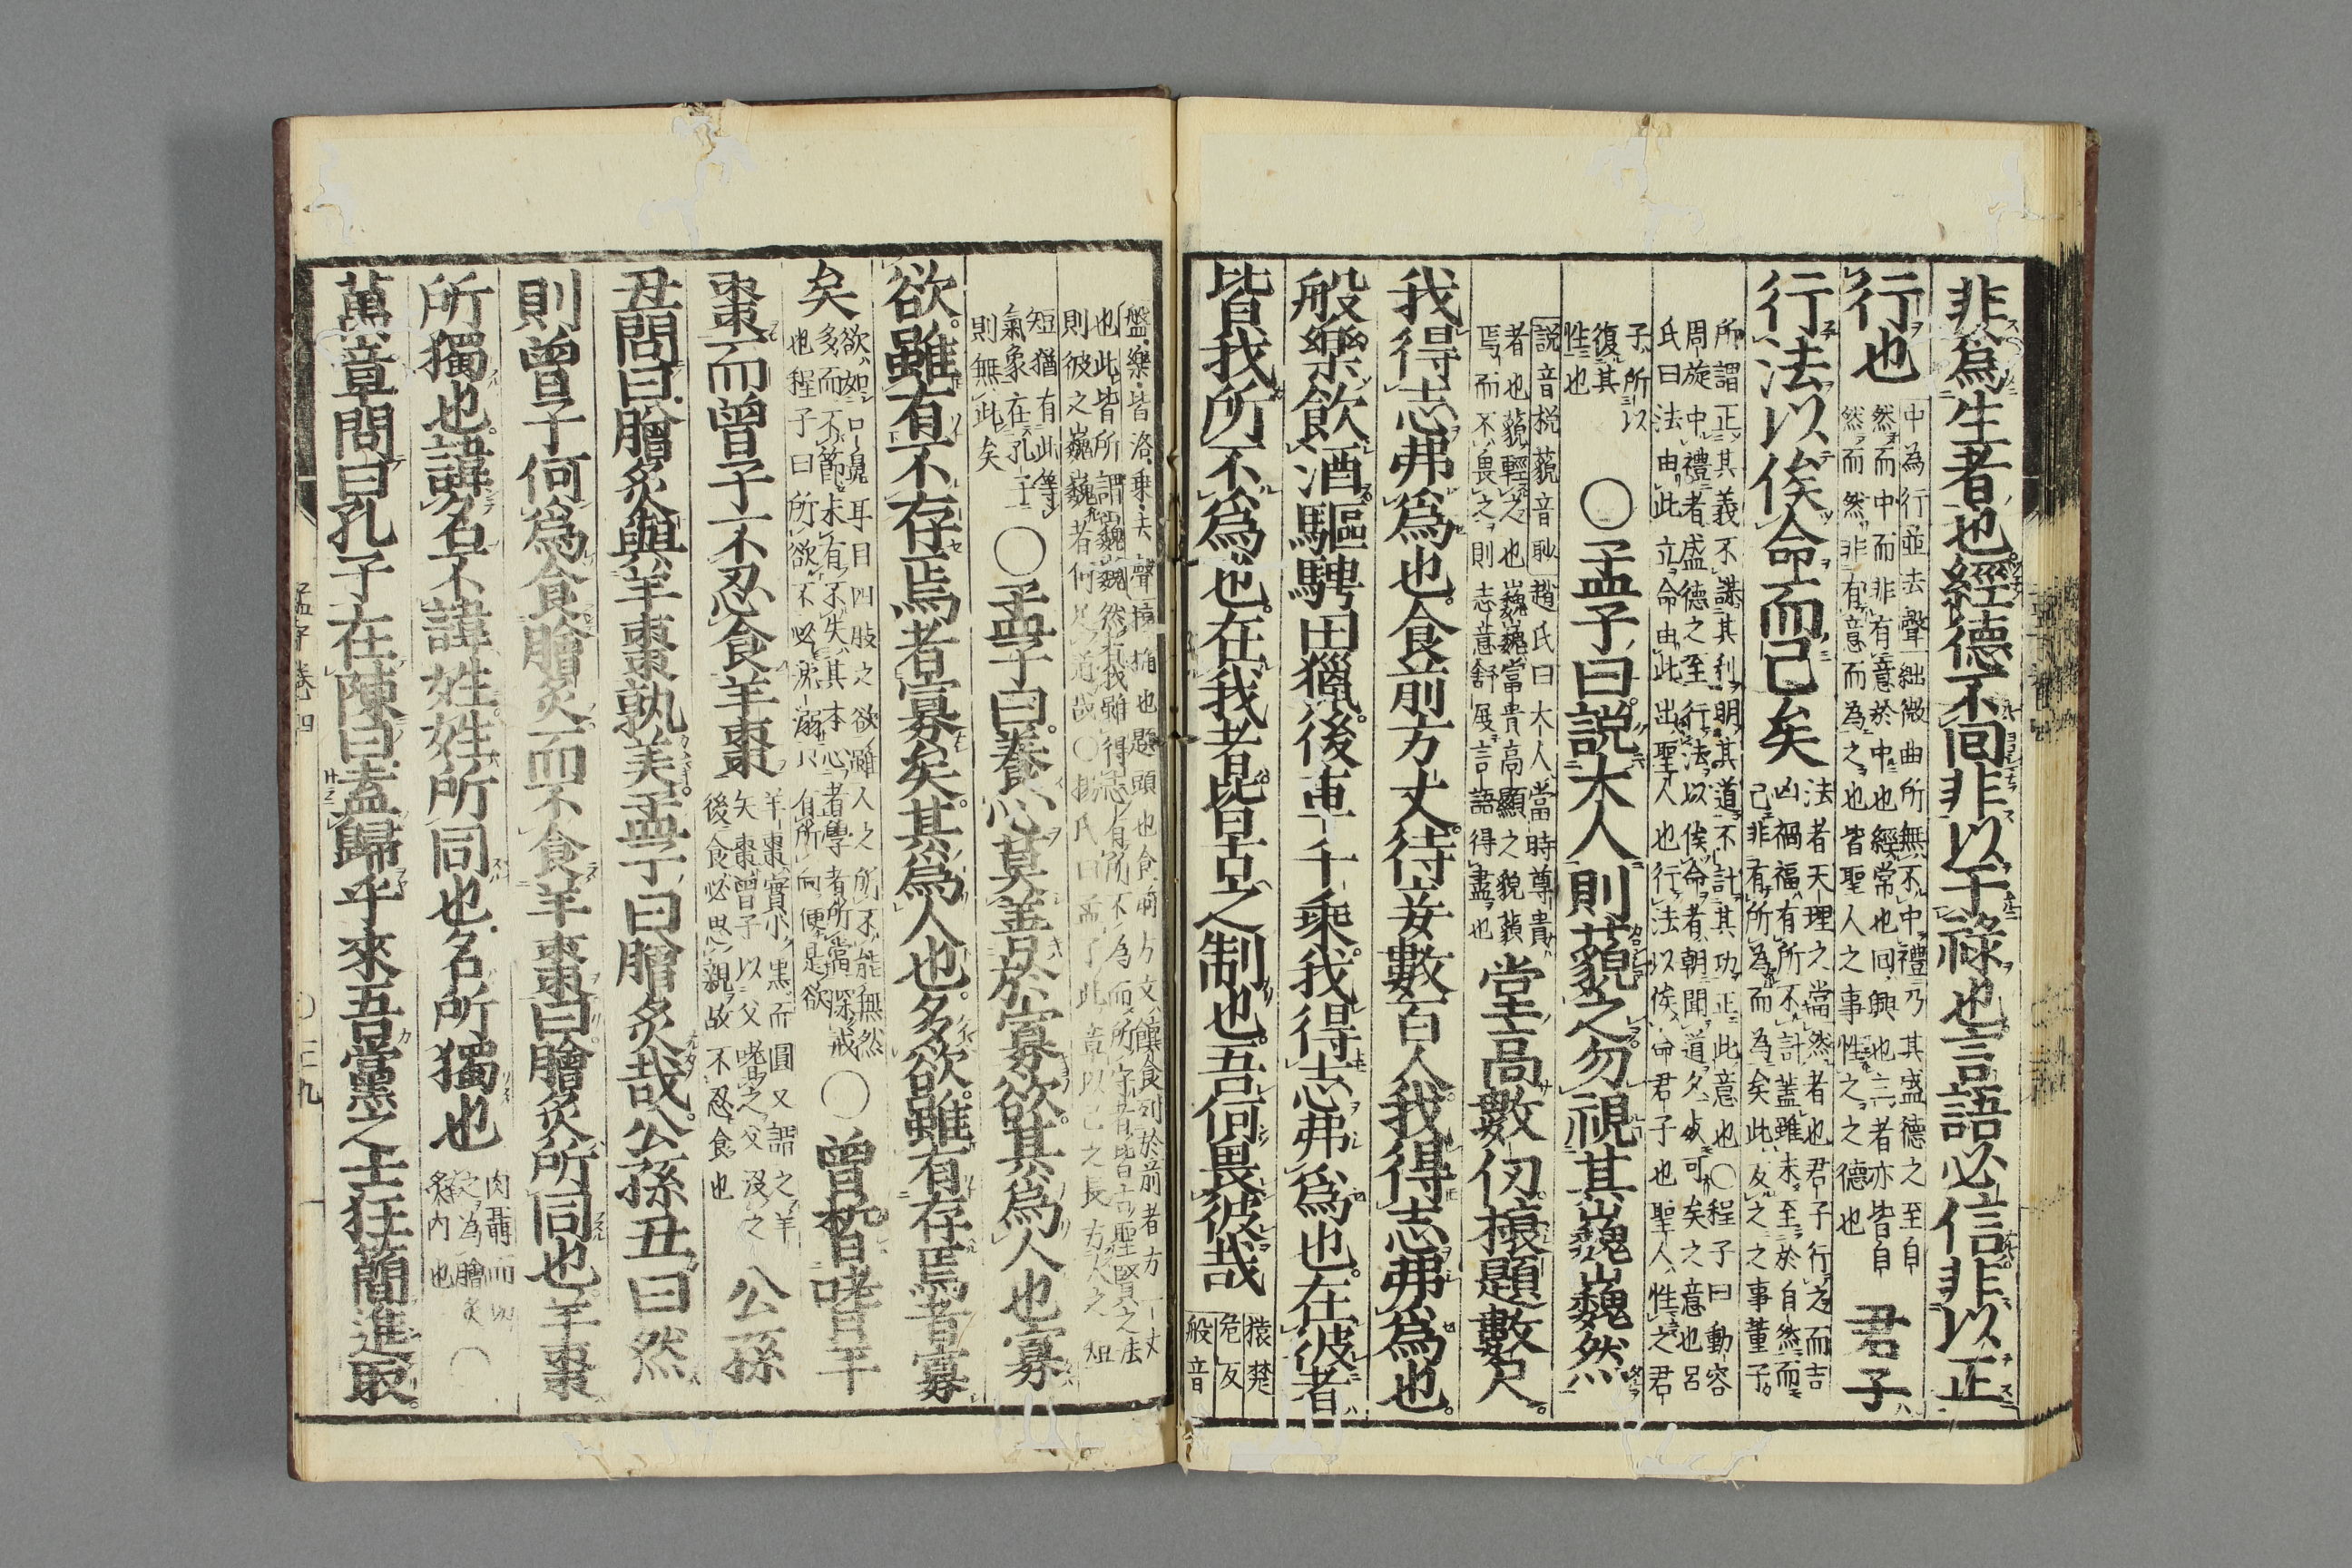 非爲生者也經德不回非以干祿也言語必信非以正
行也
中為行並去聲
細微曲折無不中禮乃其盛德之至自
然而中而非有意於中也經常也回曲也三者亦皆自
然而然非有意而為之也皆聖人之事性之之德也
君子
行法以俟命而已矣
法者天理之當然者也君子行之而吉
凶禍福有所不計蓋雖未至於自然而
已非有所為而為矣此反之之事董子
所謂正其義不謀其利明其道不計其功正此意也○程子曰動容
周旋中禮者盛德之至行法以俟命者朝聞道夕死可矣之意也呂
氏曰法由此立命由此出聖人也行法以俟命君子也聖人性之君
子所以
復其
性也
○孟子曰說大人則藐之勿視其巍巍然
說音税藐音眇
趙氏曰大人當時尊貴
者也藐輕之也巍巍當貴高顯之貌藐
焉而不畏之則志意舒展言語得盡也
堂高數仞榱題數尺
我得志弗爲也食前方丈侍妾數百人我得志弗爲也
般樂飲酒驅騁田獵後車千乘我得志弗爲也在彼者
皆我所不爲也在我者皆古之制也吾何畏彼哉
榱楚
危反
般音
盤樂音洛乘去聲
榱桷也題頭也食前方丈饌食列於前者方一丈
也此皆所謂巍巍然者我雖得志有所不為而所守者皆古聖賢之法
則彼之巍巍者何足道哉○楊氏曰孟子此章以己之長方人之短
猶有此等
氣象在孔子
則無此矣
○孟子曰養心莫善於寡欲其爲人也寡
欲雖有不存焉者寡矣其爲人也多欲雖有存焉者寡
矣
欲如口鼻耳目四肢之欲雖人之所不能無然
多而不節未有不失其本心者學者所當深戒
也程子曰所欲不必沈溺只有所向便是欲
○曾皙嗜羊
棗而曾子不忍食羊棗
羊棗實小黑而圓又謂之羊
矢棗曾子以父嗜之父沒之
後食必思親故不忍食也
公孫
丑問曰膾炙與羊棗孰美孟子曰膾炙哉公孫丑曰然
則曾子何爲食膾炙而不食羊棗曰膾炙所同也羊棗
所獨也諱名不諱姓姓所同也名所獨也
肉聶而切
之為膾炙
炙肉也
○
萬章問曰孔子在陳曰盍歸乎來吾黨之士狂簡進取
孟子卷四
○三九